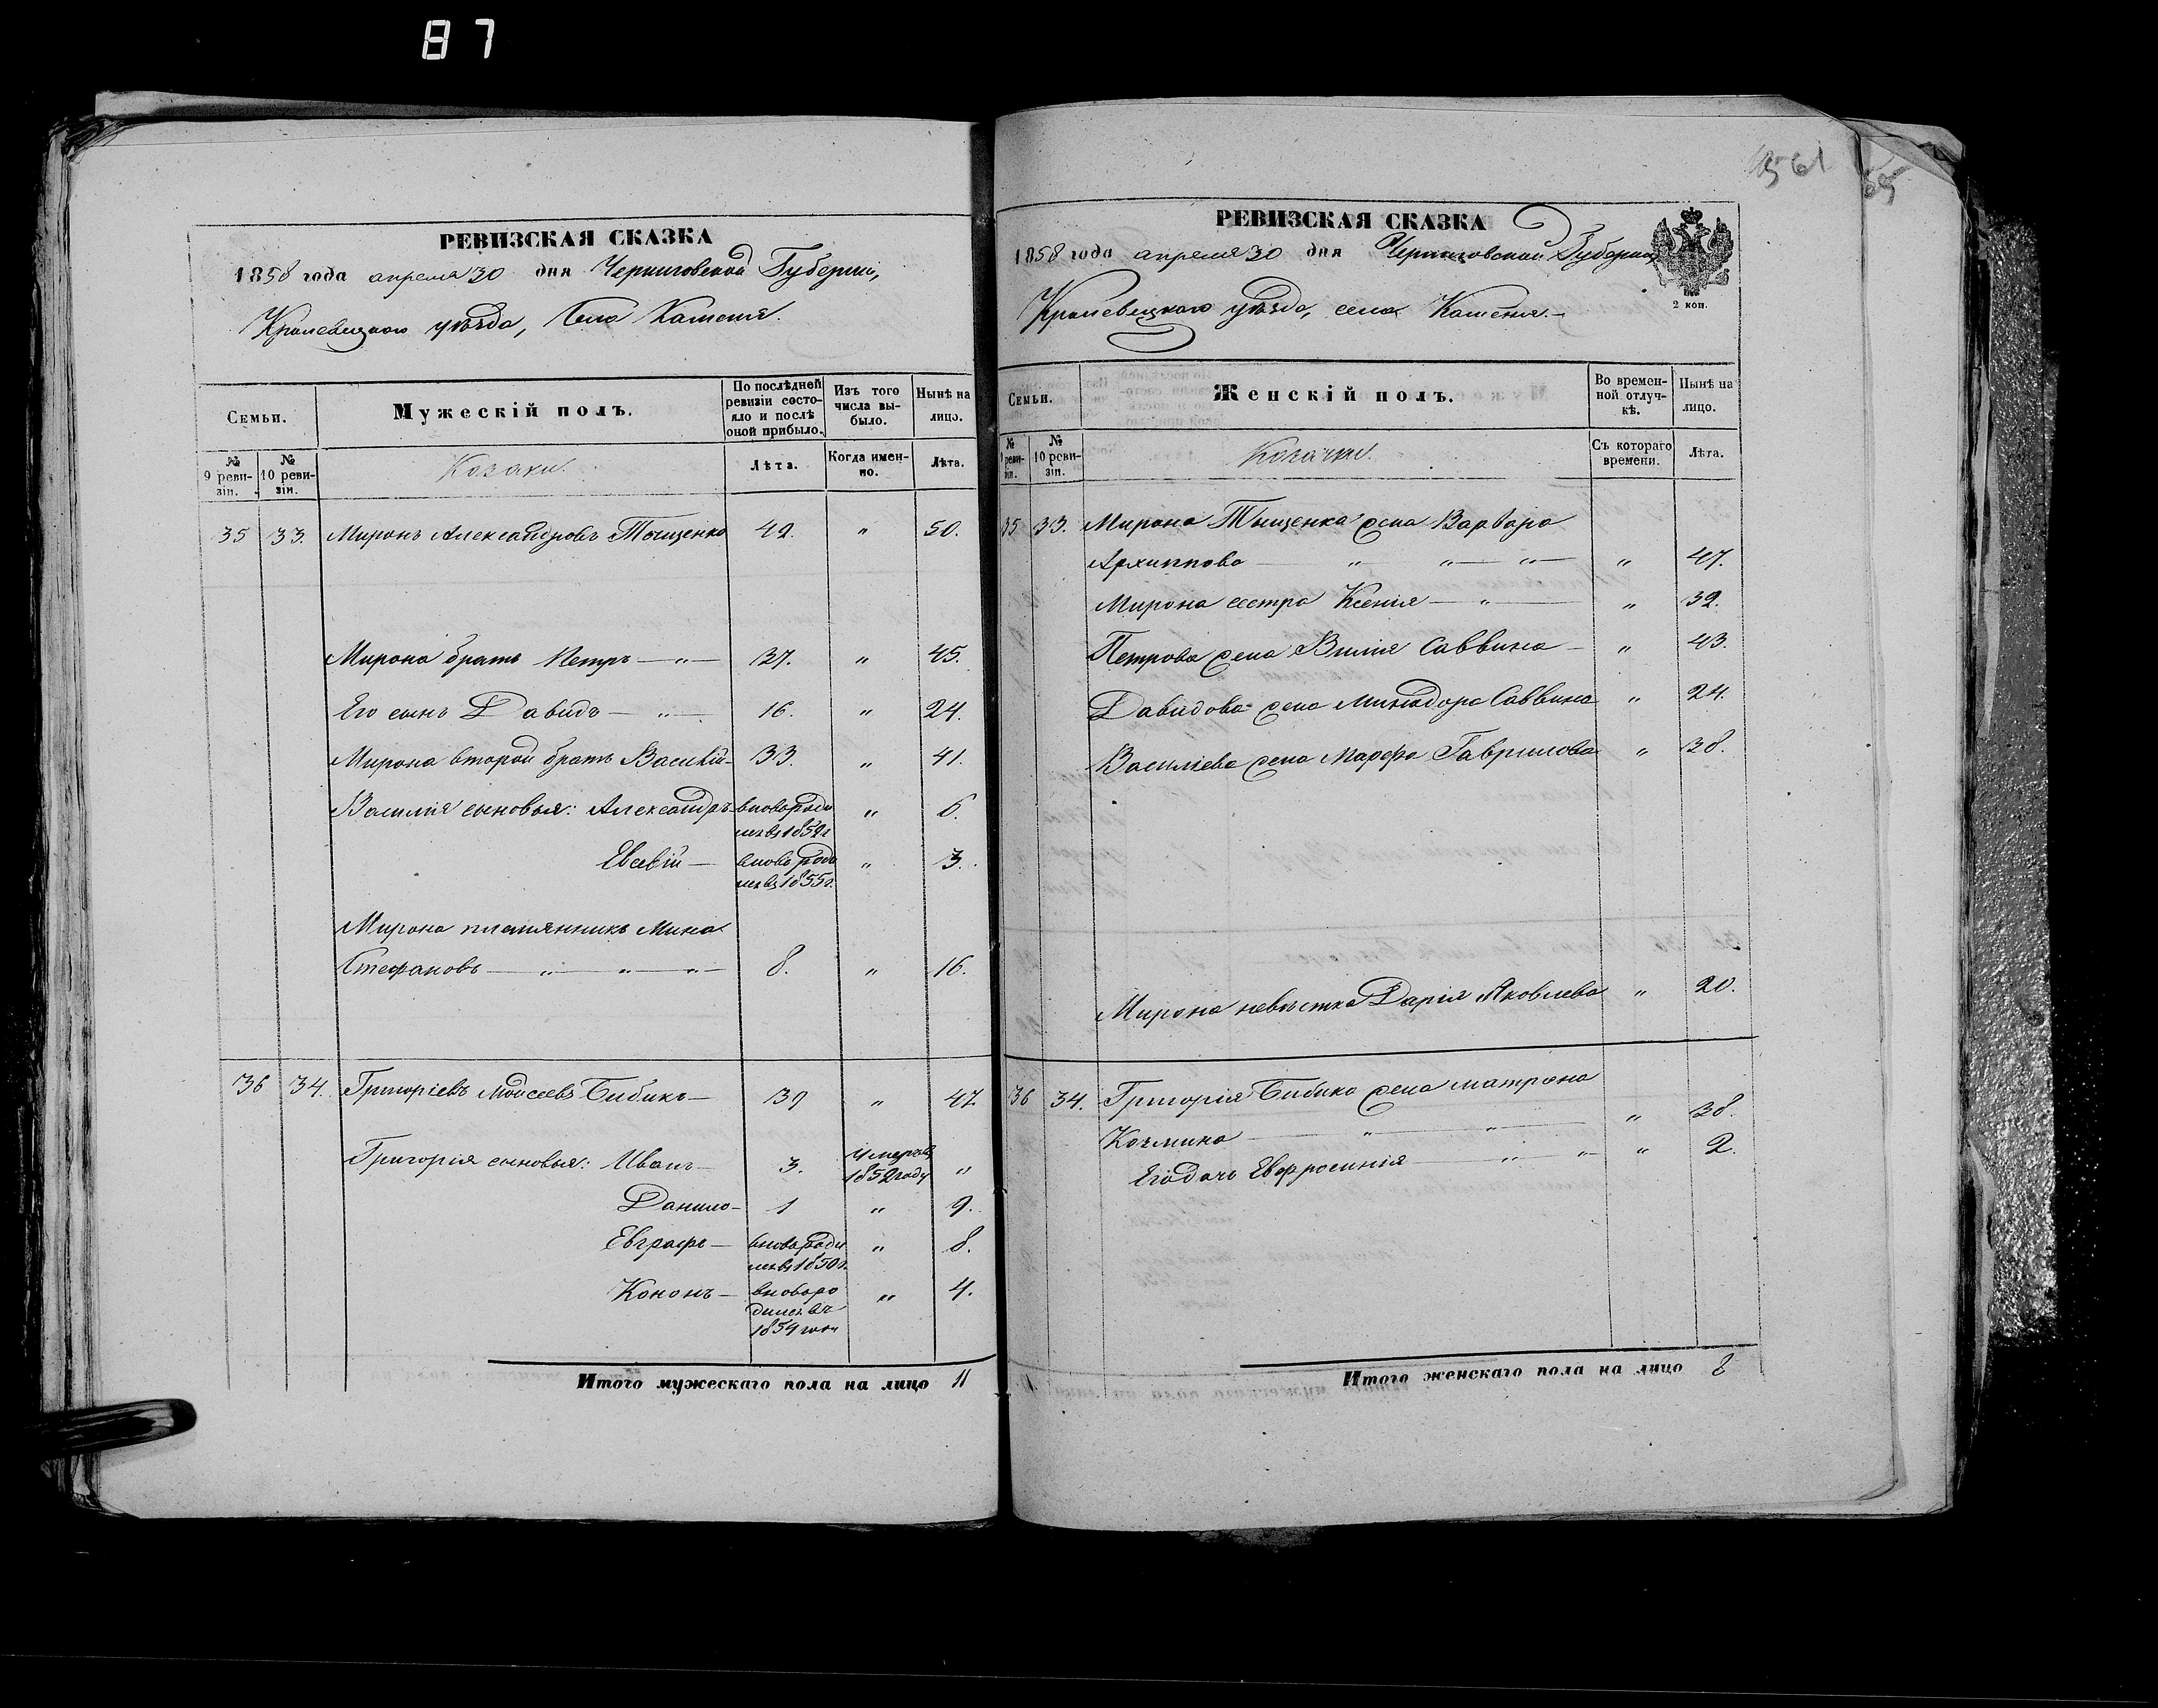 87
РЕВИЗСКАЯ СКАЗКА
1858 года апреля 30 дня Черниговской Губерніи,
Кролевецкаго уѣзда, Села Каменя.
Семьи.
Мужескій полъ.
По послѣдней ревизіи состояло и послѣ оной прибыло.
Изъ того числа выбыло.
Нынѣ на лицо.
№ 9 ревизіи.
№ 10 ревизіи.
Козаки.
Лѣта.
Когда именно.
Лѣта.
35 33. Миронъ Александровъ Тыщенко 42. " 50.
Мирона братъ Петръ — " — 37. " 45.
Его сынъ Давидъ — " — 16. " 24.
Мирона второй братъ Василій — 33. " 41.
Василія сыновья: Александръ — вновь роди " 6.
лся въ 1852 г
Евсевій — вновь роди " 3.
лся въ 1855 г.
Мирона племянникъ Мина
Стефановъ — " — " — " — 8. " 16.
36 34. Григоріевъ Моисеевъ Бибикъ — 39 " 47.
Григорія сыновья: Иванъ — 3. умеръ въ 1852 году "
Данило — 1 " 9.
Евграфъ — вновь роди " 8.
лся въ 1850 г.
Кононъ — вновь ро " 4.
дился въ
1854 году
Итого мужескаго пола на лицо 11
61
65
РЕВИЗСКАЯ СКАЗКА
1858 года апреля 30 дня Черниговской Губерніи
2 коп.
Кролевецкаго уѣзда, села Каменя. —
Семьи.
Женскій полъ.
Во временной отлучкѣ.
Нынѣ на лицо.
№ 9 ревизіи.
№ 10 ревизіи.
Козачки.
Съ котораго времени.
Лѣта.
35 33. Мирона Тыщенка жена Варвара
Архиппова — " " — " — " 47.
Мирона сестра Ксенія — " — " 39.
Петрова жена Саввина — " 43.
Давидова жена Минодора Саввина " 24.
Василіева жена Марфа Гаврилова " 38.
Мирона невѣстка Дарія Яковлева " 20.
36 34. Григорія Бибика жена Матрона
Козмина — " — " — " 38.
Его дочь Евфросинія — " — " — " 2.
Итого женскаго пола на лицо 8